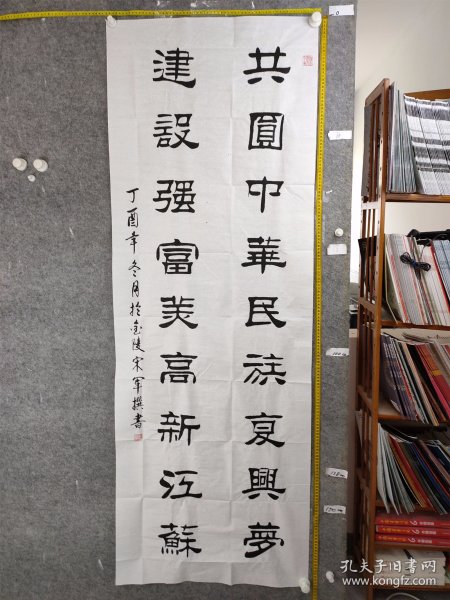 共圓中華民族复興夢
建設强富美高新江蘇
丁酉年冬月於金陵宋軍撰書
孔夫子旧书网
www.kongfz.com